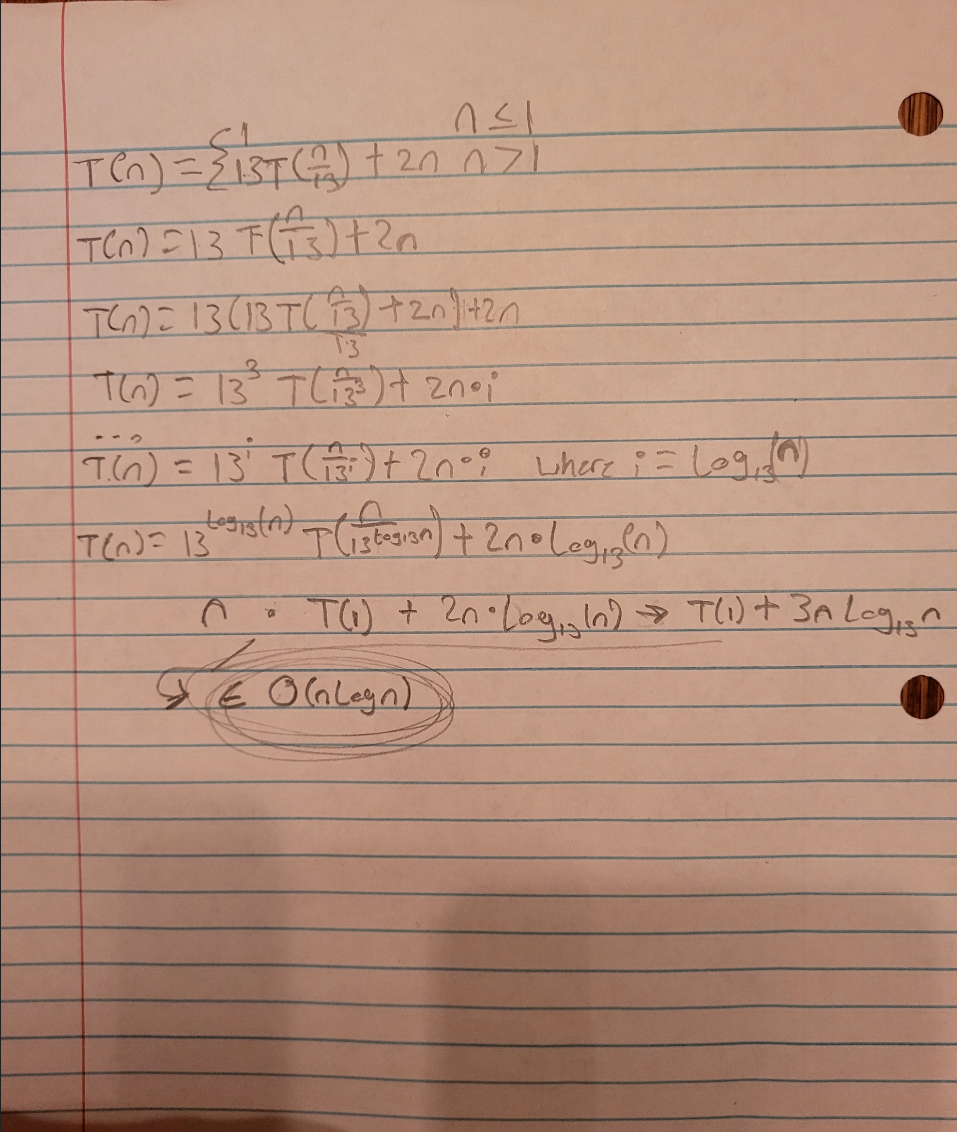 T(n) = { 1 n ≤ 1
13T(n/13) + 2n n > 1
T(n) = 13 T(n/13) + 2n
T(n) = 13(13T(n/13/13) + 2n) + 2n
T(n) = 13³ T(n/13³) + 2n•i
...
T(n) = 13^i T(n/13^i) + 2n•i where i = Log₁₃(n)
T(n) = 13^Log₁₃(n) T(n/13^Log₁₃n) + 2n•Log₁₃(n)
n • T(1) + 2n•Log₁₃(n) → T(1) + 3n Log₁₃n
↳ ∈ O(nLogn)